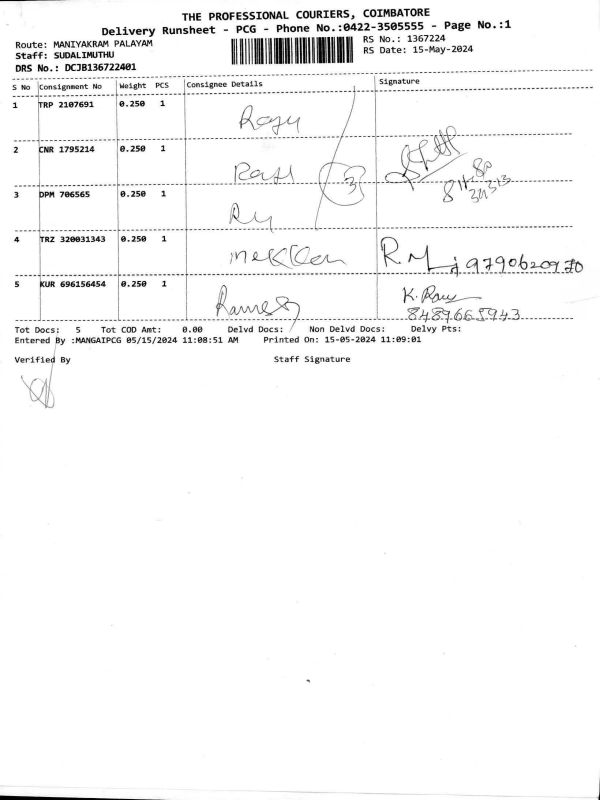 THE PROFESSIONAL COURIERS, COIMBATORE
Delivery Runsheet - PCG - Phone No.:0422-3505555 - Page No.:1
Route: MANIYAKRAM PALAYAM
RS No.: 1367224
Staff: SUDALIMUTHU
RS Date: 15-May-2024
DRS No.: DCJB136722401
S No Consignment No Weight PCS Consignee Details Signature
1 TRP 2107691 0.250 1
Raju
2 CNR 1795214 0.250 1
3
3 DPM 706565 0.250 1
4 TRZ 320031343 0.250 1
9790620970
5 KUR 696156454 0.250 1
Ramesh K. Ramu
8489665943
Tot Docs: 5 Tot COD Amt: 0.00 Delvd Docs: Non Delvd Docs: Delvy Pts:
Entered By :MANGAIPCG 05/15/2024 11:08:51 AM Printed On: 15-05-2024 11:09:01
Verified By Staff Signature